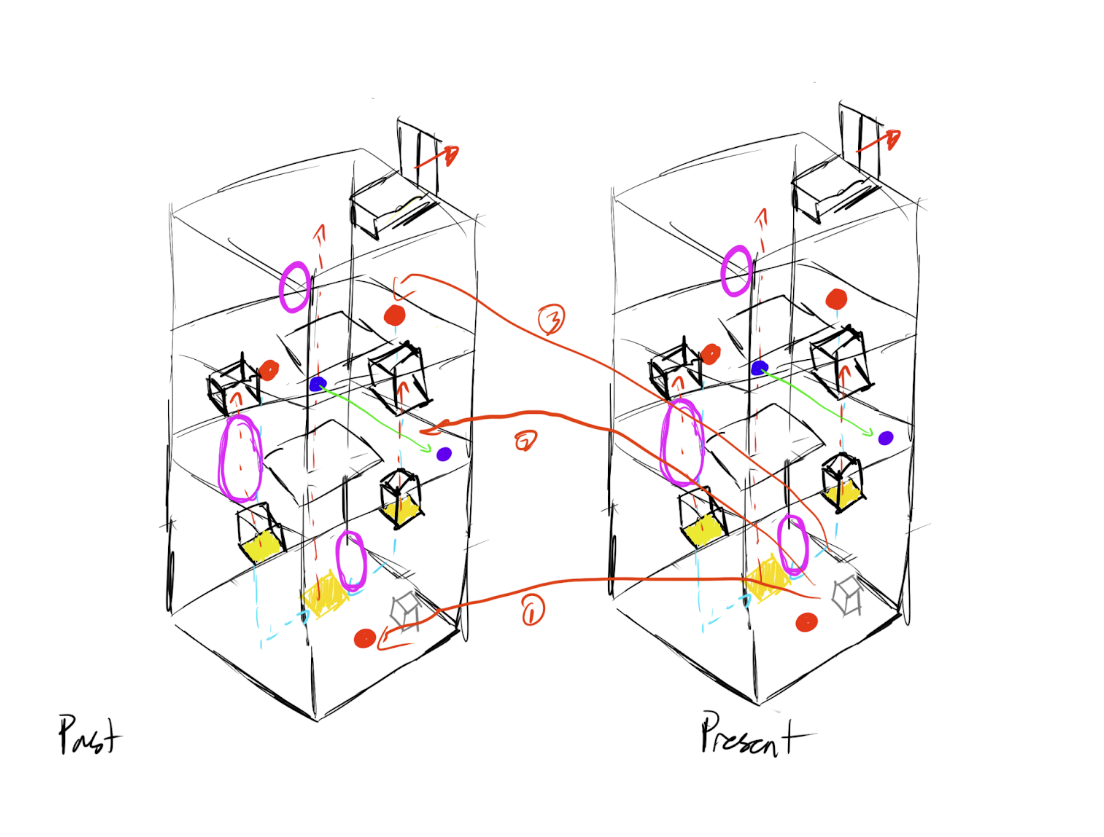 ③
②
①
Past
Present